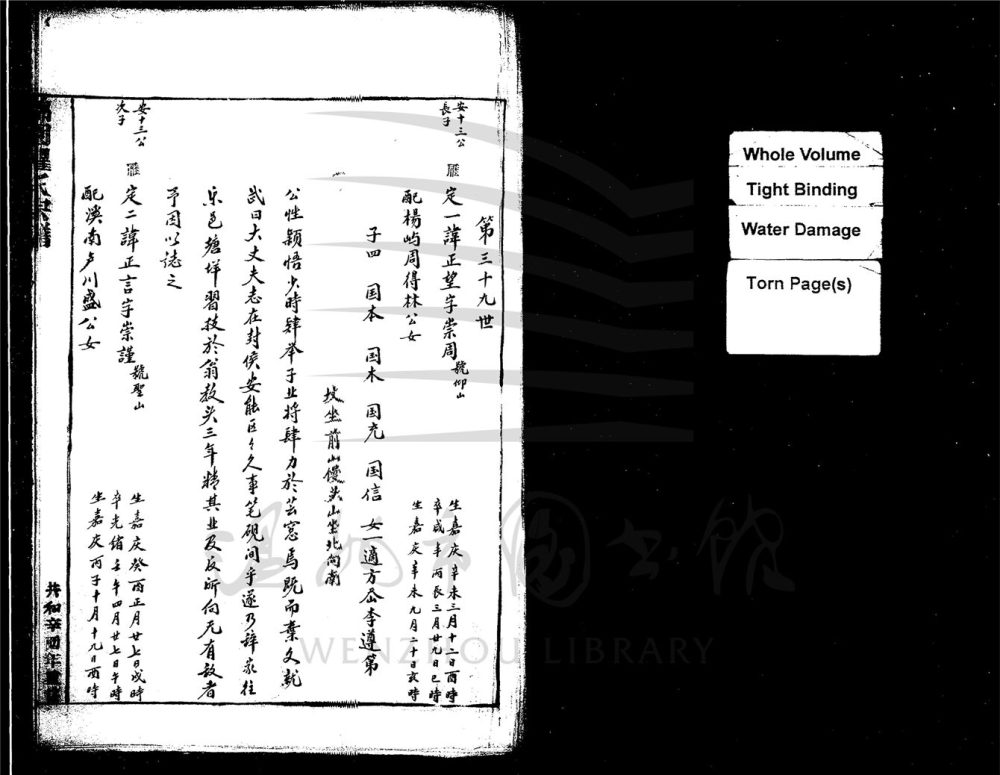 第三十九世
安十三公
長子
雁 定一諱正望字崇周 號仰山
生嘉庆辛未三月十二日酉時
卒咸丰丙辰三月廿九日巳時
配楊屿周得林公女
生嘉庆辛未九月二十日亥時
子四 国本 国木 国充 国信 女一適方岙李遵第
坟坐前山馒头山坐北向南
公性颖悟少時肄举子业将肆力於芸窓焉既而棄文就
武曰大丈夫志在封侯安能区々久事笔砚间乎遂乃辞家往
乐邑塘垟習技於翁教头三年精其业及反所向无有敌者
予因以誌之
安十三公
次子
雁 定二諱正言字崇謹 號聖山
生嘉庆癸酉正月廿七日戌時
卒光绪壬午四月廿七日午時
配溪南卢川盛公女
生嘉庆丙子十月十九日酉時
氏宗譜
共和辛酉年重修
温州市圖書館
WENZHOU LIBRARY
Whole Volume
Tight Binding
Water Damage
Torn Page(s)